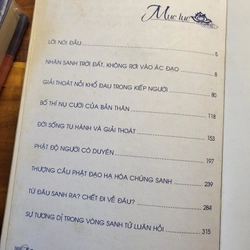 Mục lục
LỜI NÓI ĐẦU 5
NHÂN SANH TRỜI ĐẤT, KHÔNG RƠI VÀO ÁC ĐẠO 6
GIẢI THOÁT NỖI KHỔ ĐAU TRONG KIẾP NGƯỜI 80
BỐ THÍ NỤ CƯỜI CỦA BẢN THÂN 118
ĐỜI SỐNG TU HÀNH VÀ GIẢI THOÁT 153
PHẬT ĐỘ NGƯỜI CÓ DUYÊN 197
THƯỢNG CẦU PHẬT ĐẠO HẠ HÓA CHÚNG SANH 239
TỪ ĐÂU SANH RA? CHẾT ĐI VỀ ĐÂU? 284
SỰ TƯƠNG DỊ TRONG VÒNG SANH TỬ LUÂN HỒI 315